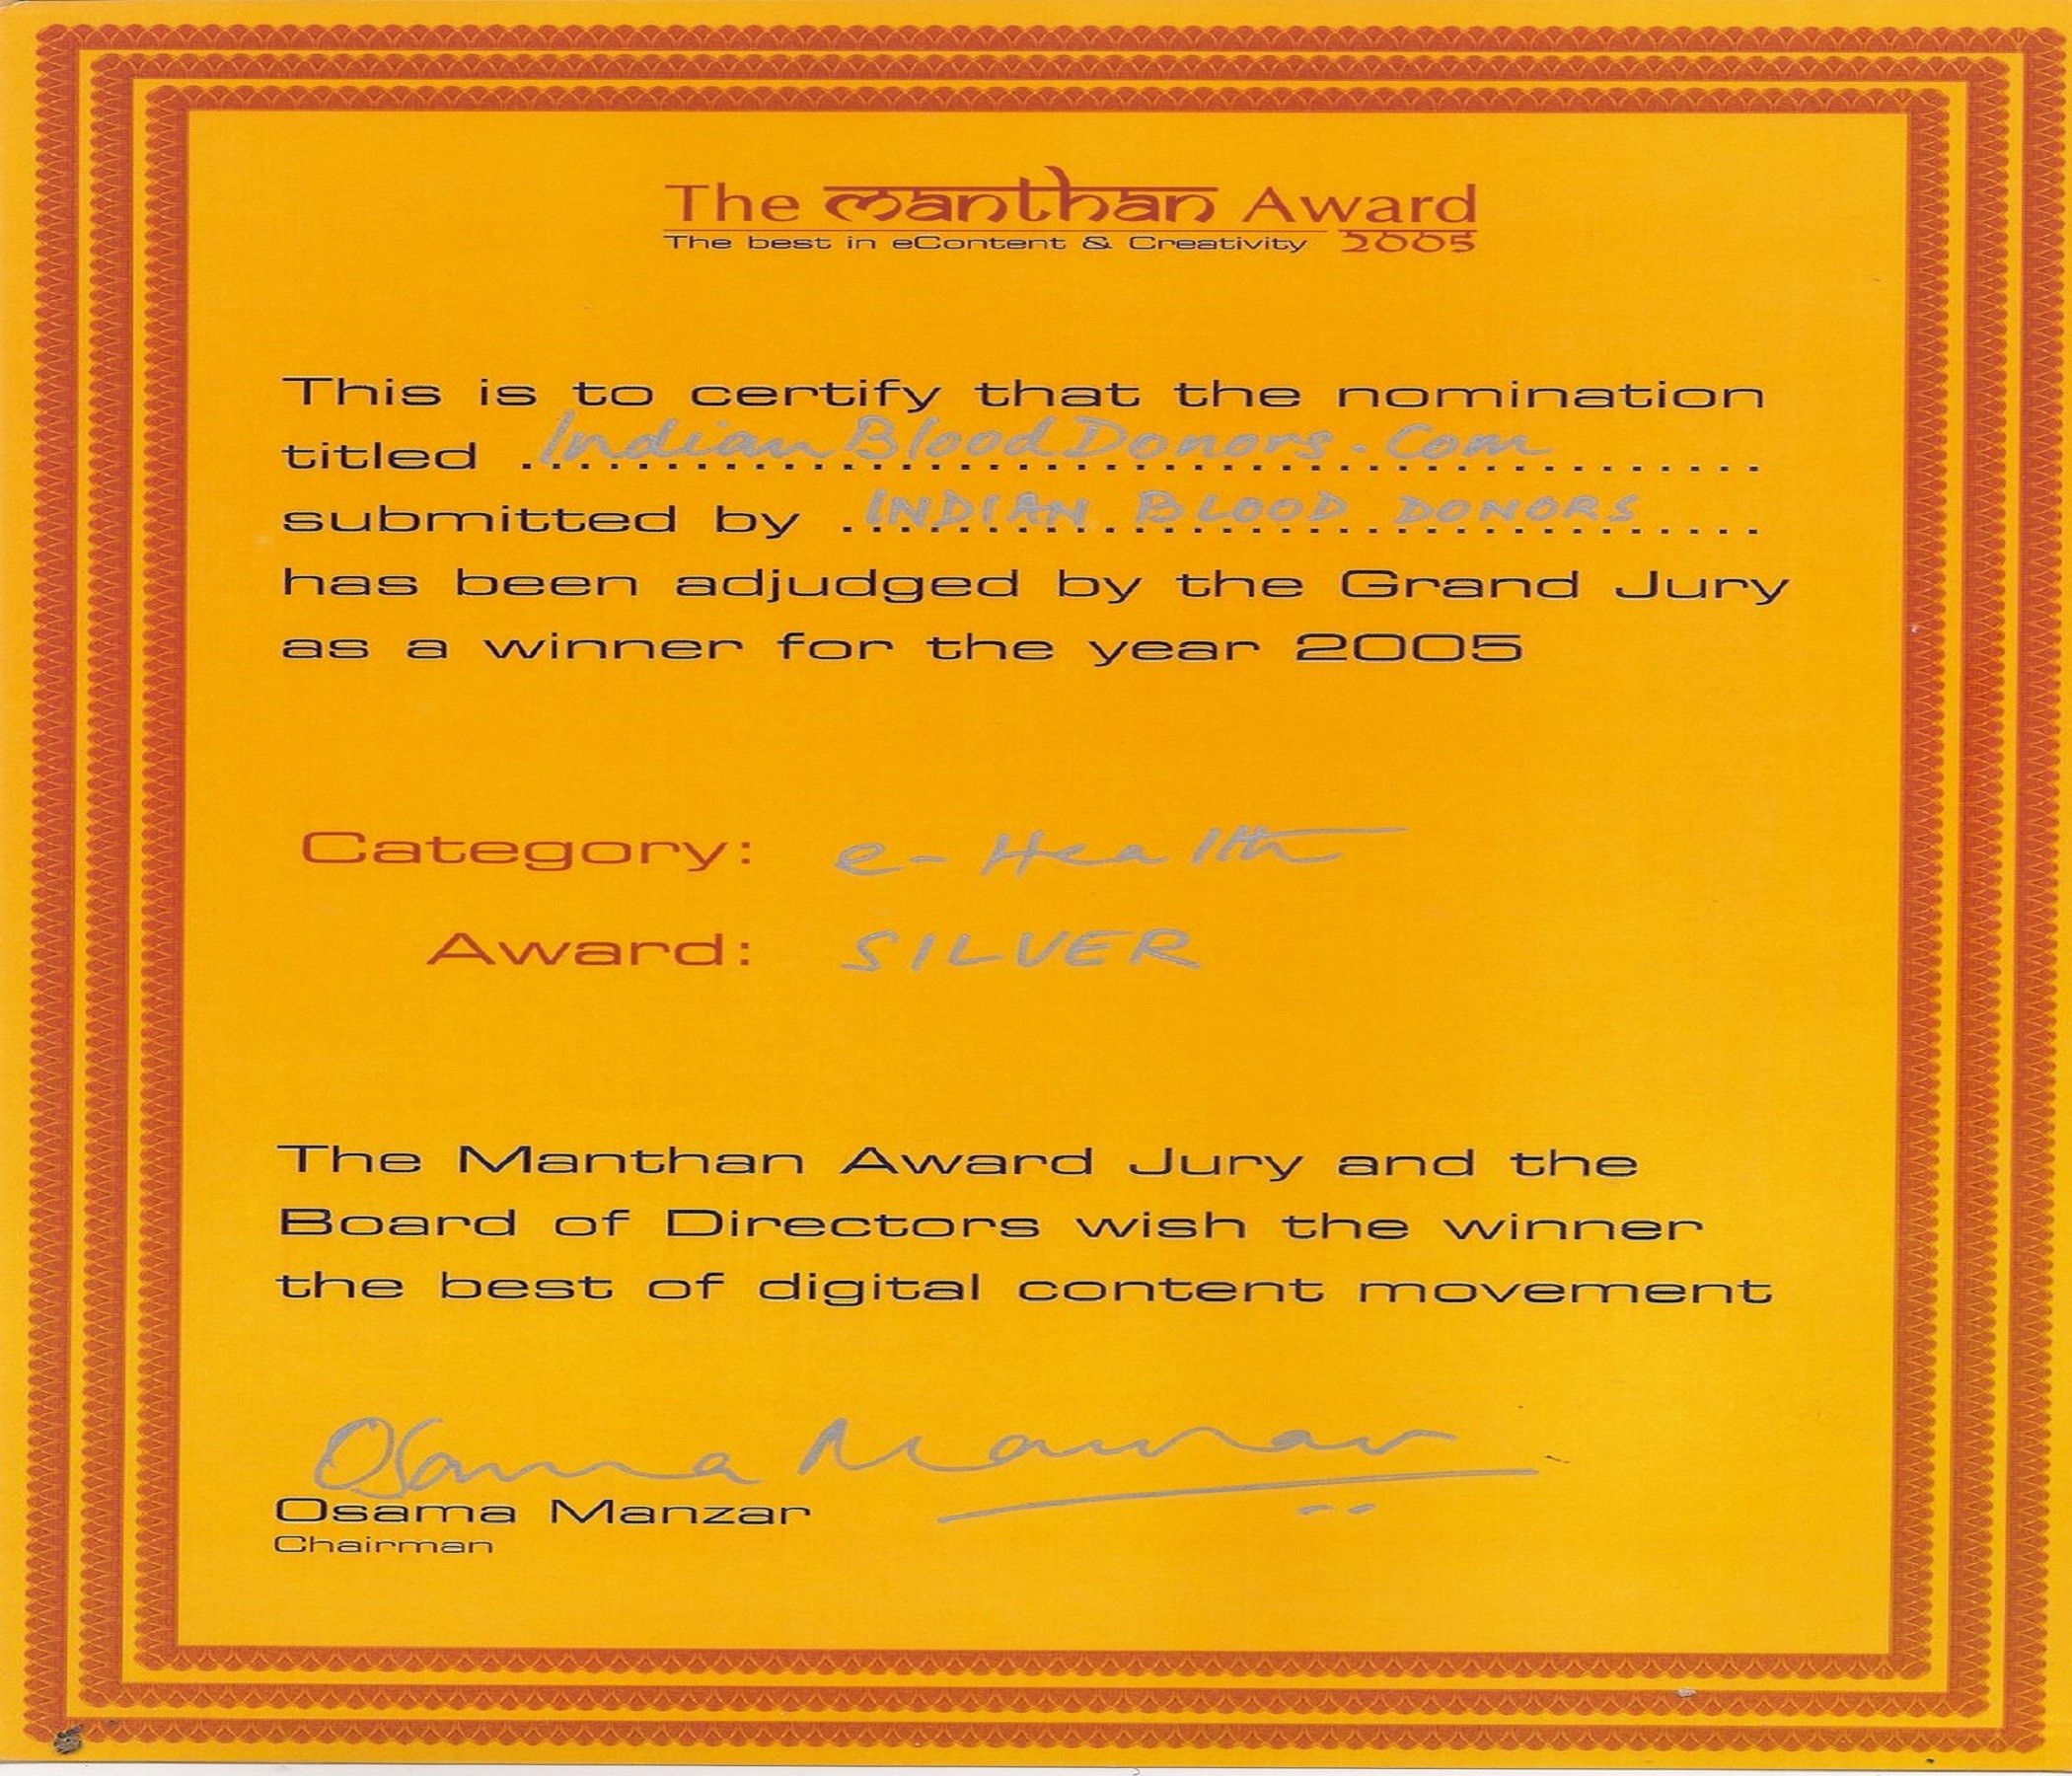 The manthan Award
The best in eContent & Creativity 2005
This is to certify that the nomination
titled IndianBloodDonors.Com
submitted by INDIAN BLOOD DONORS
has been adjudged by the Grand Jury
as a winner for the year 2005
Category: e-Health
Award: SILVER
The Manthan Award Jury and the
Board of Directors wish the winner
the best of digital content movement
Osama Manzar
Osama Manzar
Chairman